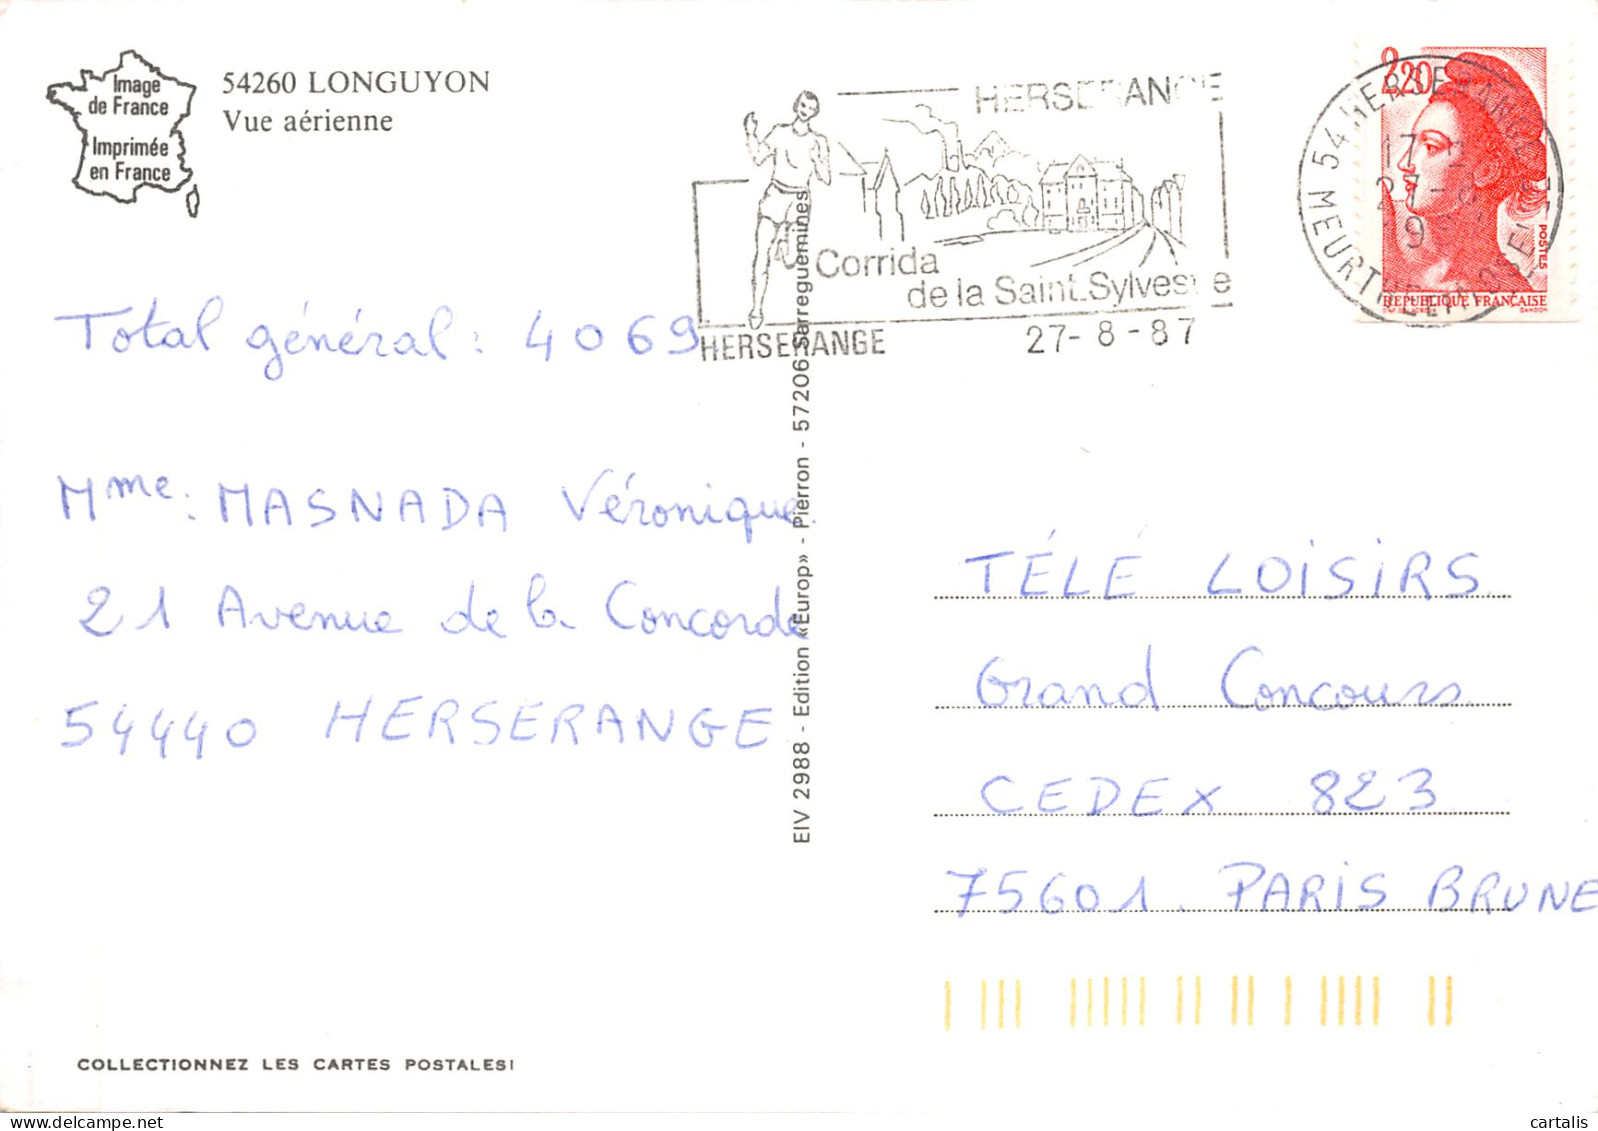 Image
de France
Imprimée
en France
54260 LONGUYON
Vue aérienne
HERSERANGE
Corrida
de la Saint.Sylvestre
HERSERANGE
27-8-87
54 HERSERANGE
MEURTHE-ET-MOSELLE
2,20
POSTES
REPUBLIQUE FRANÇAISE
GANDON
Total général : 4069
Mme : MASNADA Véronique.
21 Avenue de la Concorde
54440 HERSERANGE
EIV 2988 - Edition «Europ» - Pierron - 57206 Sarreguemines
TÉLÉ LOISIRS
Grand Concours
CEDEX 823
75601. PARIS BRUNE
COLLECTIONNEZ LES CARTES POSTALES!
cartalis